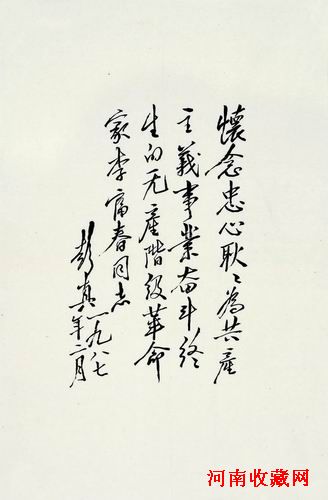 懷念忠心耿〻為共產
主義事業奋斗終
生的无產階级革命
家李富春同志
彭真一九八七
年二月
河南收藏网